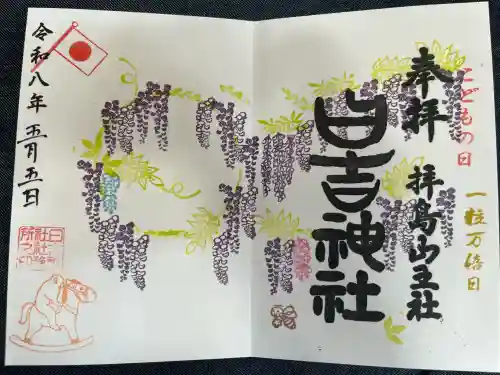 こどもの日
一粒万倍日
奉拝
拝島山王社
日吉神社
令和八年 五月五日
日吉
神社
之印